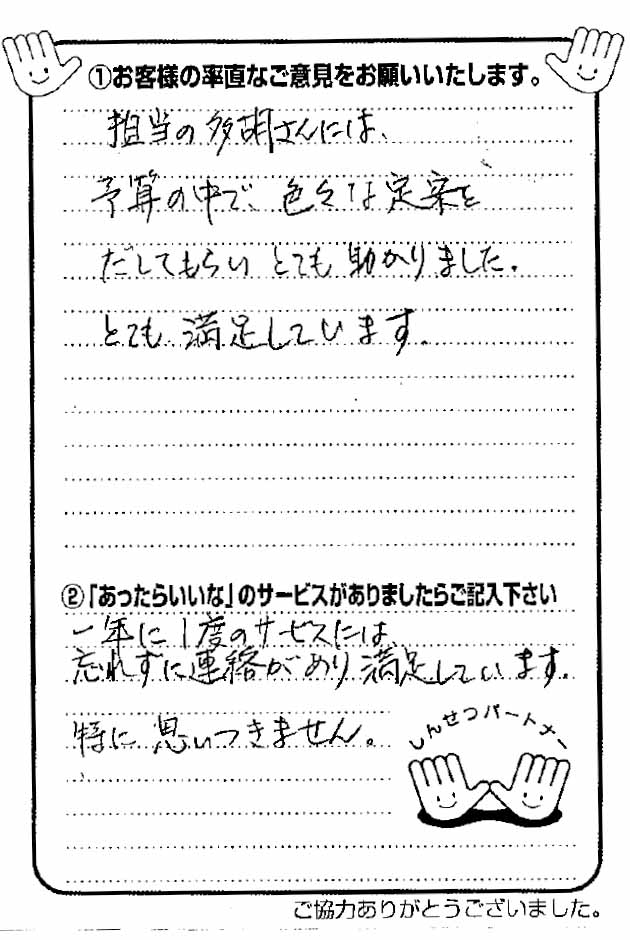 ①お客様の率直なご意見をお願いいたします。
担当の多胡さんには、
予算の中で、色々な定案を
だしてもらい とても 助かりました。
とても 満足しています。
②「あったらいいな」のサービスがありましたらご記入下さい
一年に1度のサービスには、
忘れずに連絡があり満足しています。
特に思いつきません。
しんせつパートナー
ご協力ありがとうございました。